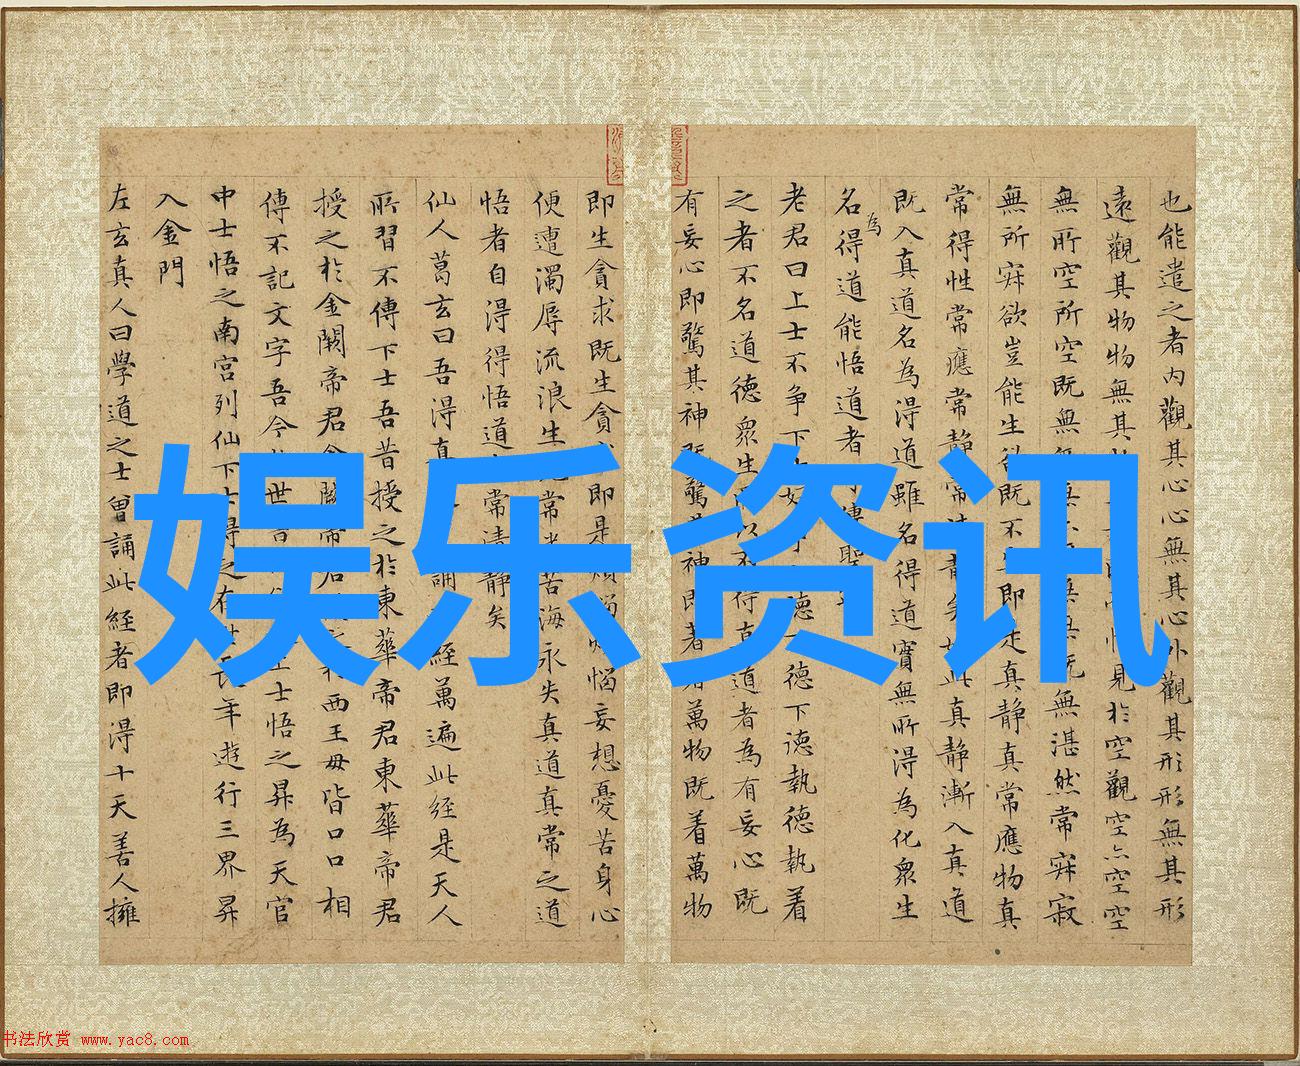 也能遣之者内觀其心心無其心外觀其形形無其形
遠觀其物物無其見於空觀空亦空空
無所空所空既無無湛然常寂寂
無所寂欲豈能生欲既不即是真静真常應物真
常得性常應常静常此真静漸入真道
既入真道名為得道雖名得道實無所得為化衆生
名為得道能悟道者傳聖
老君曰上士不争下德下德執德執着
之者不名道德衆生以不得真道者為有妄心既
有妄心即驚其神既驚其神即著萬物既着萬物
即生貪求既生貪即是惱妄想憂苦身心
便遭濁辱流浪生常苦海永失真道真常之道
悟者自得得悟道常清静矣
仙人葛玄曰吾得真誦經萬遍此經是天人
所習不傳下士吾昔授之於東華帝君東華帝君
授之於金闕帝君金闕帝君西王母皆口口相
傳不記文字吾今世書上士悟之昇為天官
中士悟之南宫列仙下士得之在年遊行三界昇
入金門
左玄真人曰學道之士曾誦此經者即得十天善人擁
娱乐资讯
书法欣赏 www.yac8.com